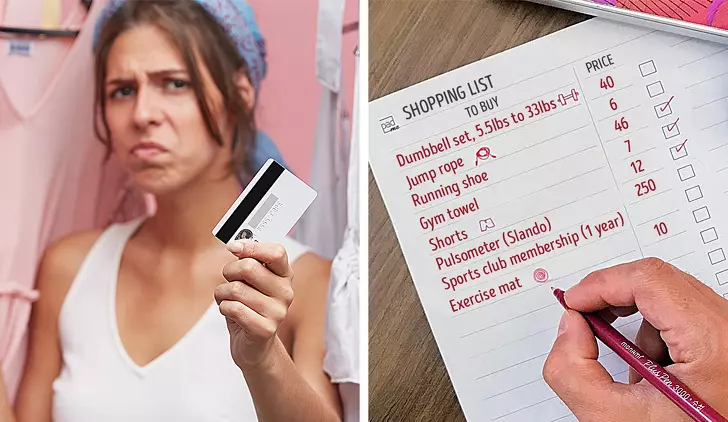 SHOPPING LIST PRICE
TO BUY
Dumbbell set, 5.5lbs to 33lbs 40
Jump rope 6
Running shoe 46
Gym towel 7
Shorts 12
Pulsometer (Slando) 250
Sports club membership (1 year)
Exercise mat 10
monami Plus Pen 3000 수성